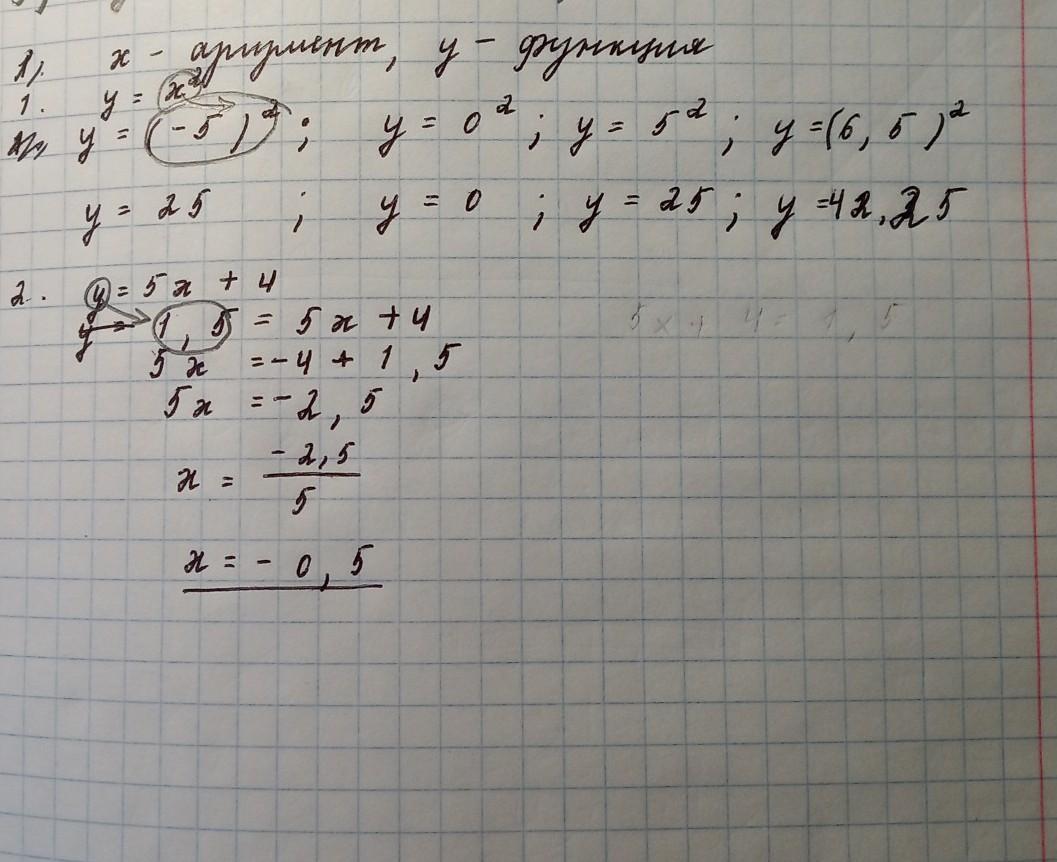 1). x - аргумент, y - функция
1. y = x²
y = (-5)² ; y = 0² ; y = 5² ; y = (6,5)²
y = 25 ; y = 0 ; y = 25 ; y = 42,25
2. y = 5x + 4
y = 1,5 = 5x + 4 5x + 4 = 1,5
5x = -4 + 1,5
5x = -2,5
x = -2,5 / 5
x = -0,5